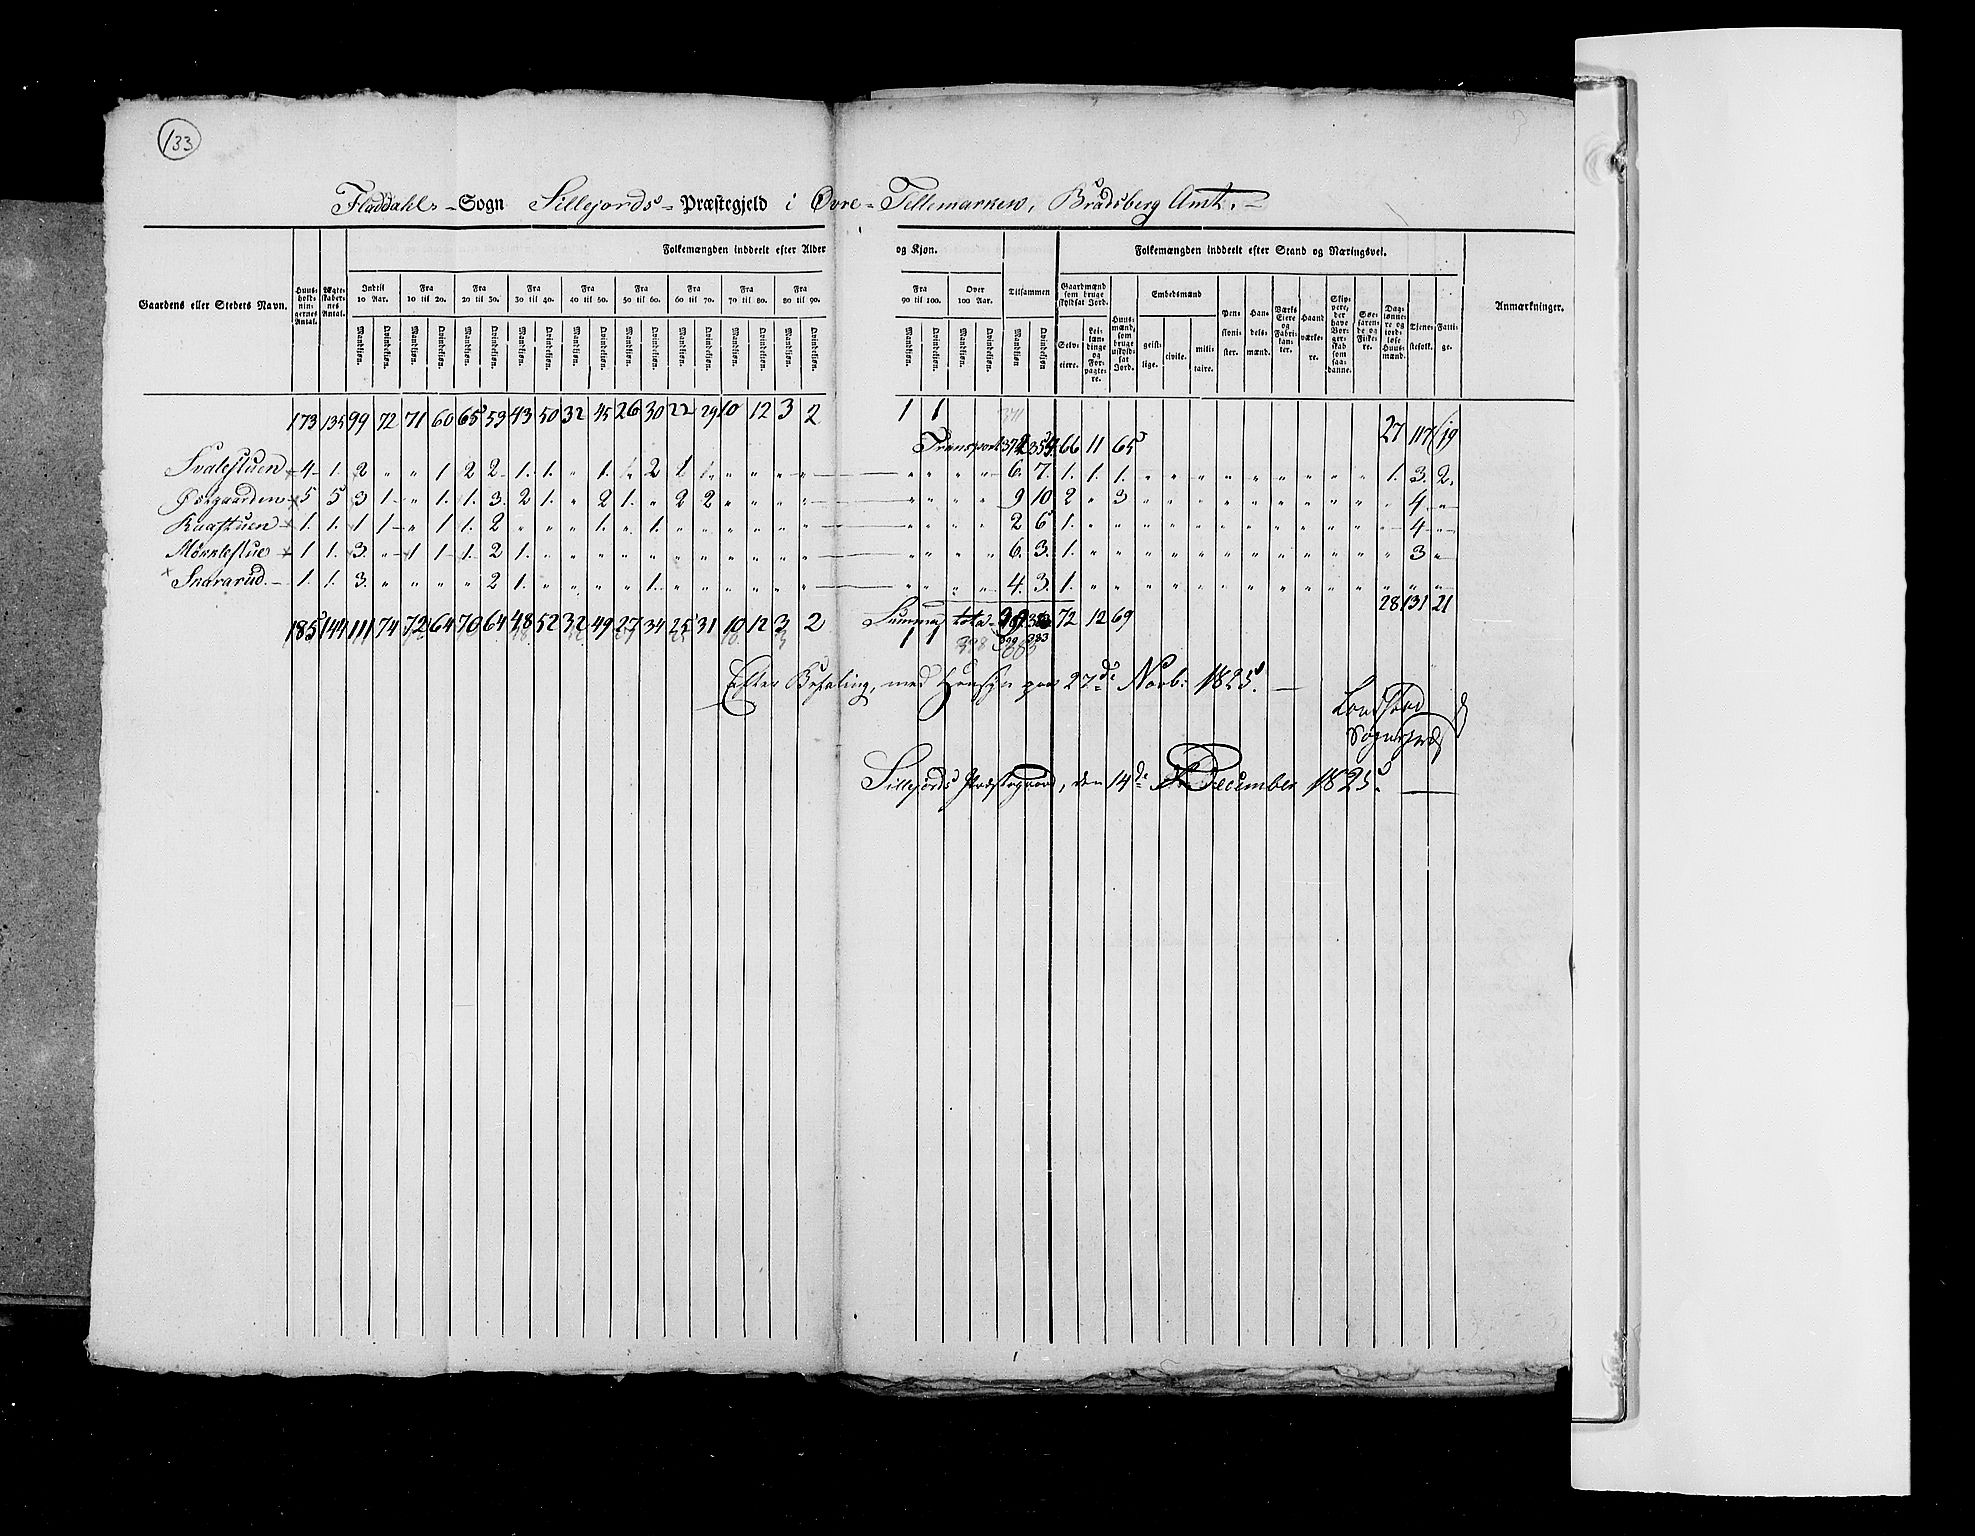 133
Fladdahls - Sogn Sillejords - Præstegjeld i Øvre - Tellemarken, Bradsberg Amt. -
Gaardens eller Stedets Navn. Huusholdningernes Antal. Ægteskabernes Antal. Folkemængden inddeelt efter Alder og Kjøn. Folkemængden inddeelt efter Stand og Næringsvei. Anmærkninger.
Indtil 10 Aar. Fra 10 til 20. Fra 20 til 30. Fra 30 til 40. Fra 40 til 50. Fra 50 til 60. Fra 60 til 70. Fra 70 til 80. Fra 80 til 90. Fra 90 til 100. Over 100 Aar. Tilsammen Gaardmænd som bruge skyldsat Jord. Huusmænd, som bruge uskyldsat Jord. Embedsmænd Pensionister. Handelsmænd. Værks Eiere og Fabrikanter. Haandværkere. Skippere, der have Borgerskab som saadanne. Søefarende og Fiskere. Daglønnere og jordløse Huusmænd. Tjenestefolk. Fattige.
Mandkjøn. Qvindekjøn. Mandkjøn. Qvindekjøn. Mandkjøn. Qvindekjøn. Mandkjøn. Qvindekjøn. Mandkjøn. Qvindekjøn. Mandkjøn. Qvindekjøn. Mandkjøn. Qvindekjøn. Mandkjøn. Qvindekjøn. Mandkjøn. Qvindekjøn. Mandkjøn. Qvindekjøn. Mandkjøn. Qvindekjøn. Mandkjøn Qvindekjøn Selveiere. Leilændinge og Forpagtere. geistlige. civile. militaire.
173 135 99 72 71 60 65 53 43 50 32 45 26 30 22 29 10 12 3 2 1 1 371
Transport 354 66 11 65 27 117 19
Svalestuen 4 1. 2 " " 1 2 2 1. 1. " 1. " 2 1 1. " " " " " " " " 6. 7. 1. 1. 1. " " " " " " " " " 1. 3. 2.
Øregaarden 5 5 3 1. " 1. 1. 3. 2 1. " 2 1. " 2 2 " " " " " " " " 9 10 2 " 3 " " " " " " " " " " 4 "
Kaastuen 1. 1. 1 1 " 1 1. 2 " " " 1. " 1. " " " " " " " " " " 2 6 1. " " " " " " " " " " " " 4 "
Mørklestue 1 1. 3. " 1 1 1. 2 1. " " " " " " " " " " " " " " " 6. 3. 1. " " " " " " " " " " " " 3 "
Snararud. 1. 1. 3. " " " " 2 1. " " " " 1. " " " " " " " " " " 4. 3. 1. " " " " " " " " " " " " " "
185 144 111 74 72 64 70 64 48 52 32 49 27 34 25 31 10 12 3 2 Summa total 72 12 69 28 131 21
1 1 398 399 383
Efter Befaling, med Hensyn paa 27de Novb: 1825. —
Landstad
Sognepræst
Sillejords Præstegaard, den 14de December 1825. —